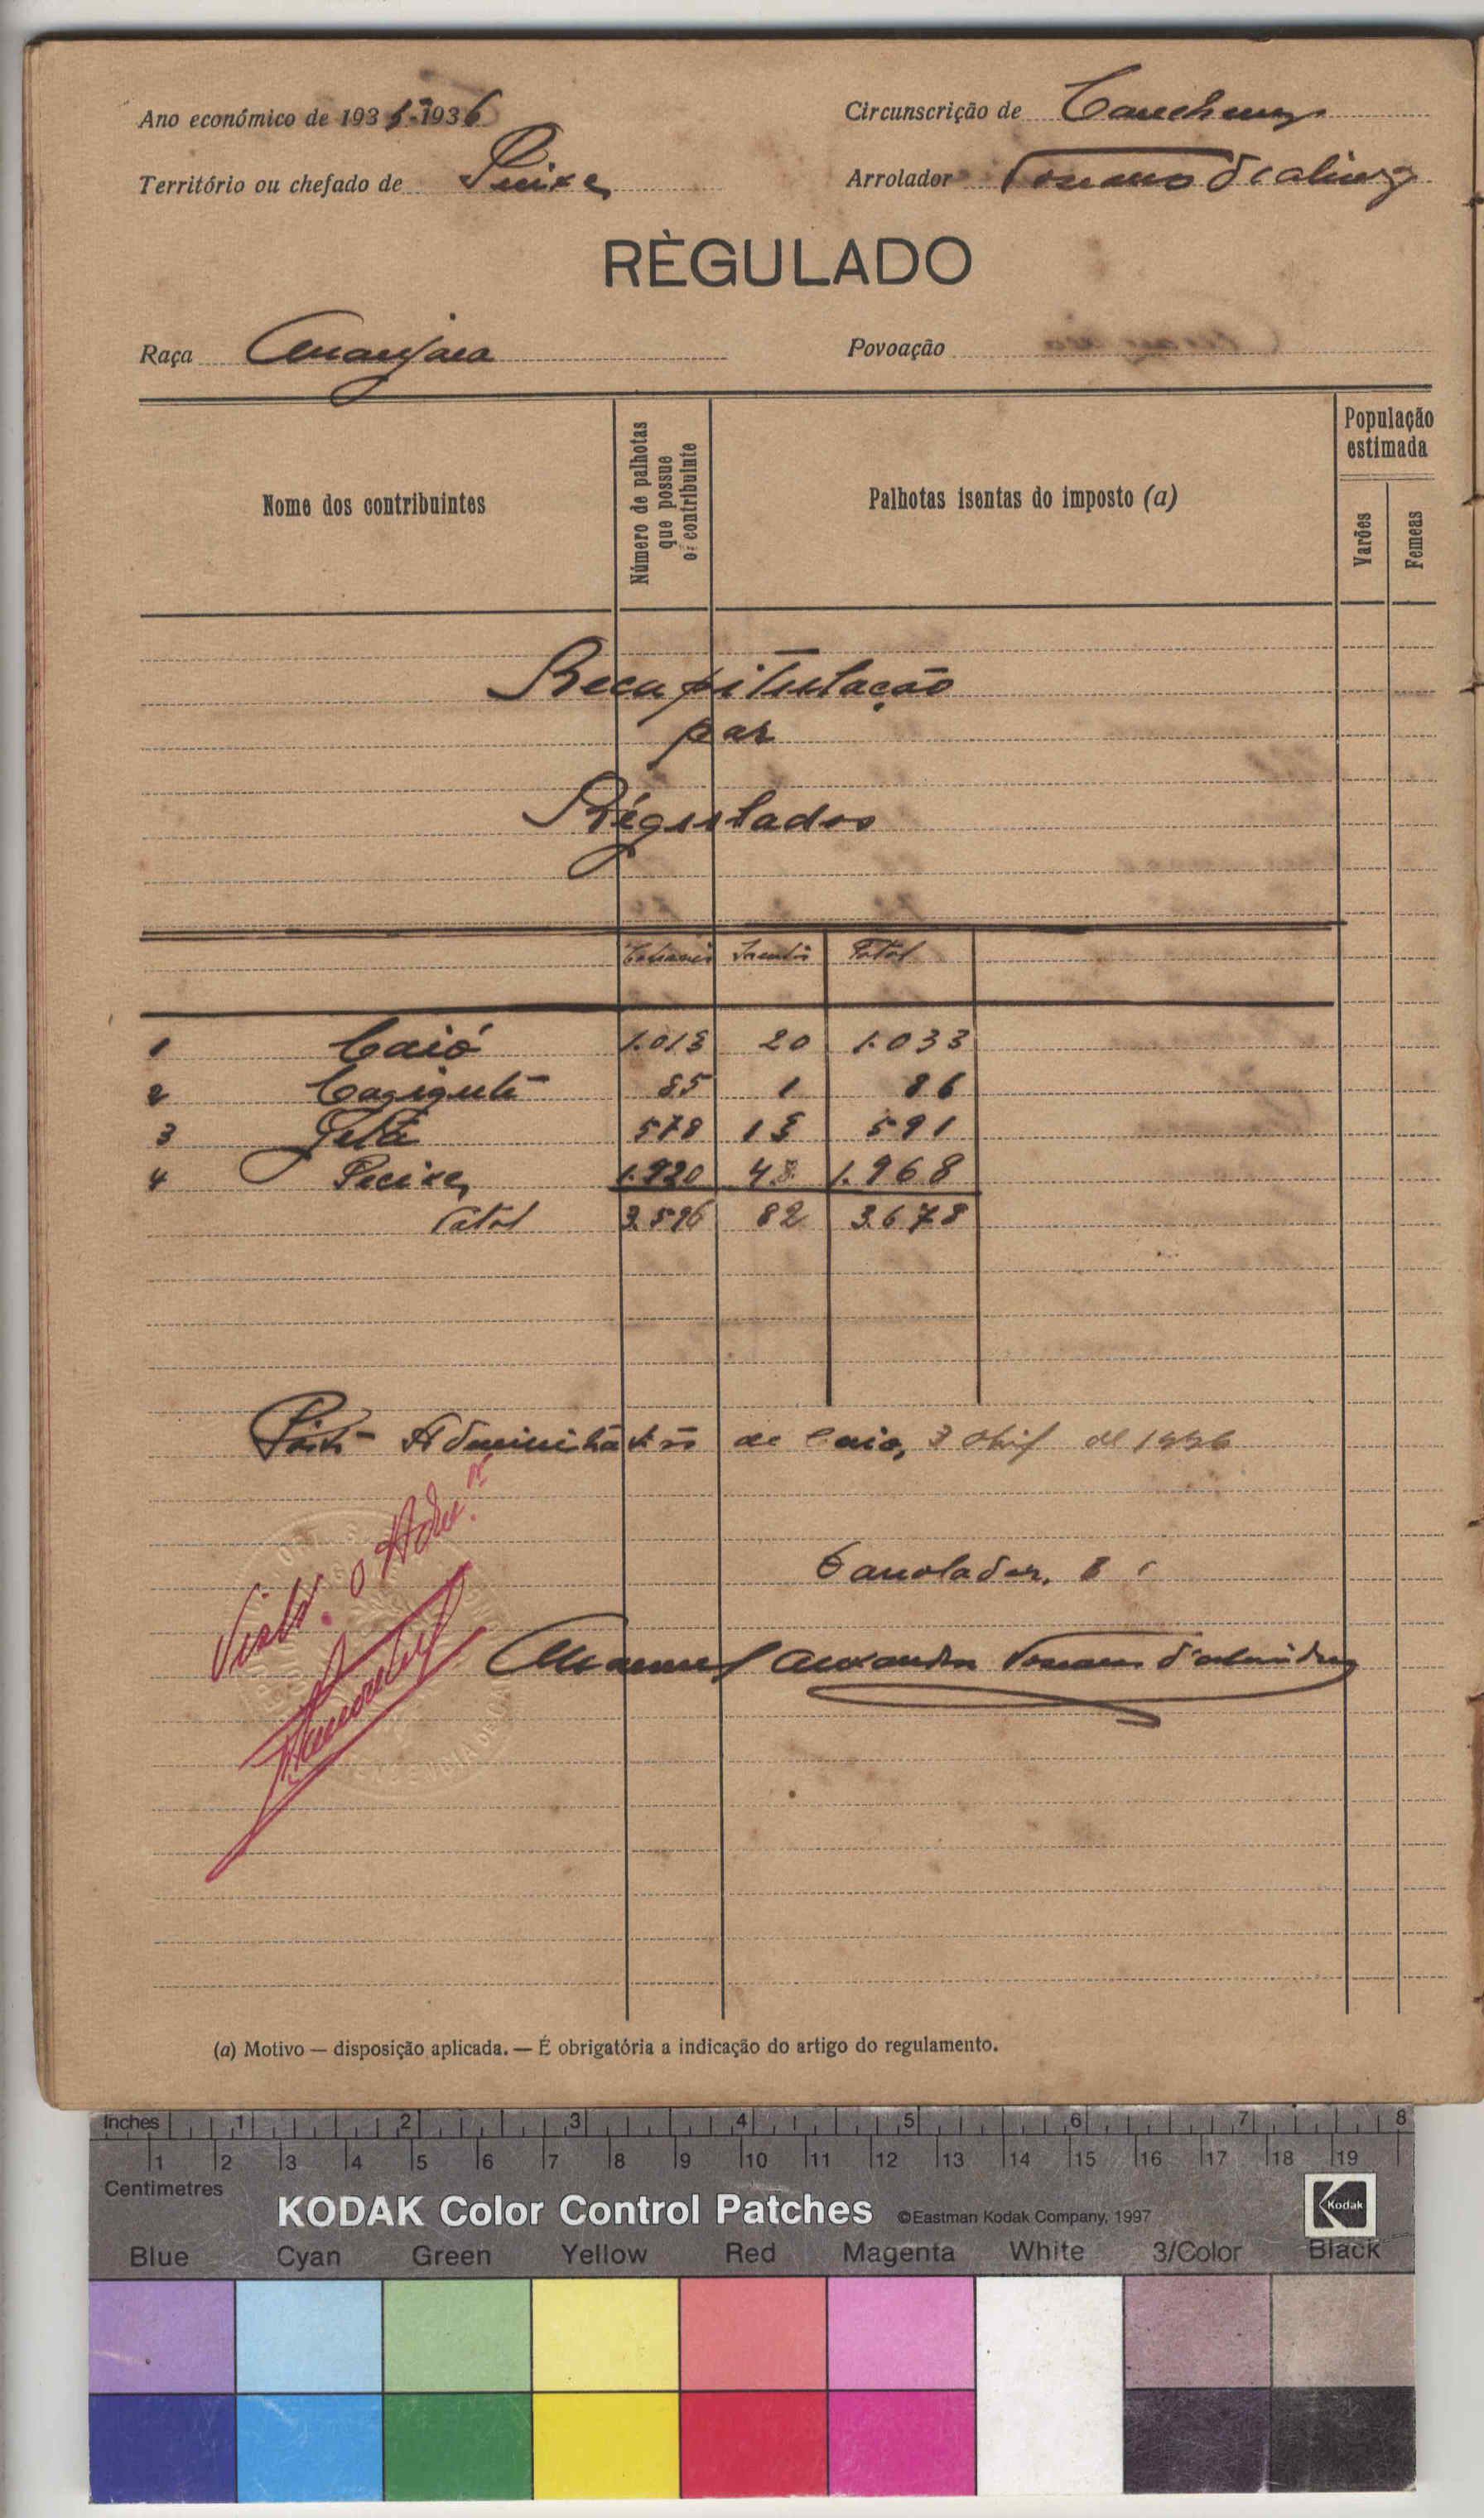 Ano económico de 1935-1936 Circunscrição de
Território ou chefado de Pecixe Arrolador
RÈGULADO
Raça Manjaca Povoação
Nome dos contribuintes
Número de palhotas que possue o contribuinte
Palhotas isentas do imposto (a)
População estimada
Varões
Femeas
Recapitulação
por
Régulados
Total
1 Caió 1.013 20 1.033
2 85 1 86
3 Jetá 578 13 591
4 Pecixe 1.920 48 1.968
Total 3.596 82 3.678
Pôsto Administrativo de Caió, 3 de 1936
O arrolador,
Manuel Alexandre
Visto. O Adm.ºr
(a) Motivo — disposição aplicada. — É obrigatória a indicação do artigo do regulamento.
Inches 1 2 3 4 5 6 7 8
1 2 3 4 5 6 7 8 9 10 11 12 13 14 15 16 17 18 19
Centimetres
KODAK Color Control Patches ©Eastman Kodak Company, 1997 Kodak
Blue Cyan Green Yellow Red Magenta White 3/Color Black